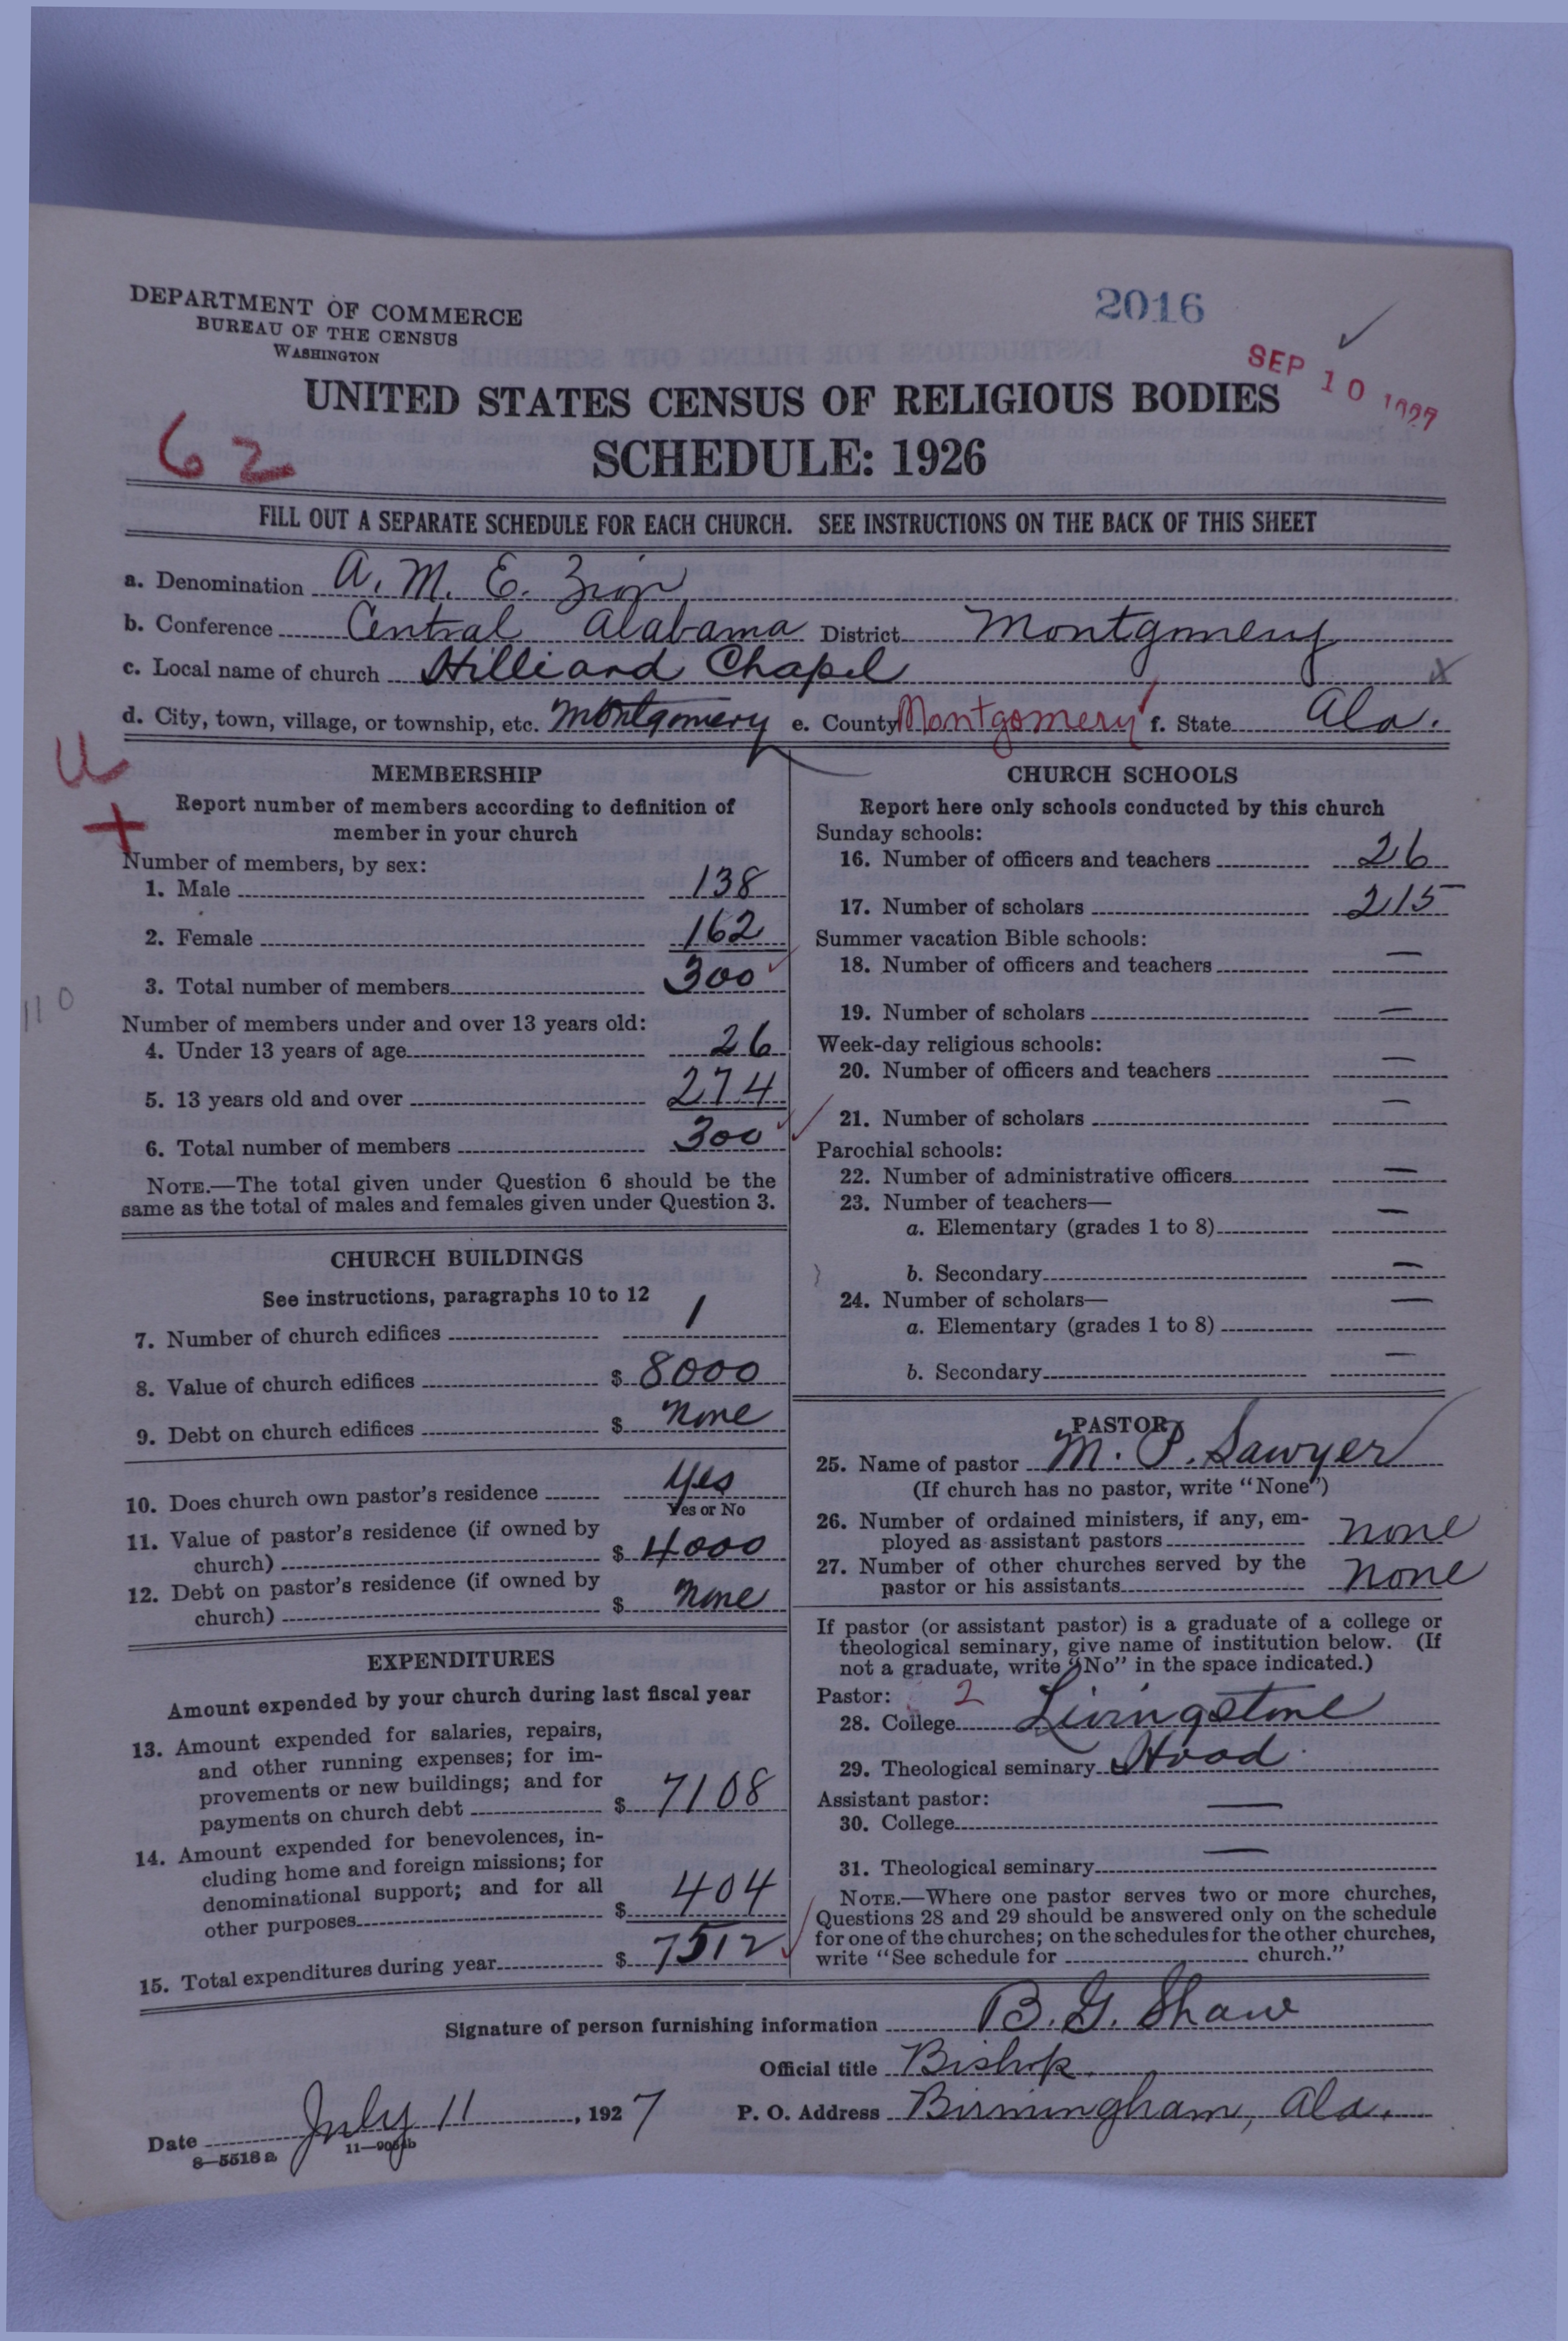 DEPARTMENT OF COMMERCE
BUREAU OF THE CENSUS
WASHINGTON
2016
SEP 10 1927
UNITED STATES CENSUS OF RELIGIOUS BODIES
62
SCHEDULE: 1926
FILL OUT A SEPARATE SCHEDULE FOR EACH CHURCH. SEE INSTRUCTIONS ON THE BACK OF THIS SHEET
a. Denomination A. M. E. Zion
b. Conference Central Alabama District Montgomery
c. Local name of church Hilliard Chapel x
d. City, town, village, or township, etc. Montgomery e. County Montgomery f. State Ala.
U
+
MEMBERSHIP
Report number of members according to definition of
member in your church
Number of members, by sex:
1. Male 138
2. Female 162
3. Total number of members 300
110
Number of members under and over 13 years old:
4. Under 13 years of age 26
5. 13 years old and over 274
6. Total number of members 300
NOTE.—The total given under Question 6 should be the
same as the total of males and females given under Question 3.
CHURCH BUILDINGS
See instructions, paragraphs 10 to 12
7. Number of church edifices 1
8. Value of church edifices $ 8000
9. Debt on church edifices $ none
10. Does church own pastor's residence Yes
Yes or No
11. Value of pastor's residence (if owned by
church) $ 4000
12. Debt on pastor's residence (if owned by
church) $ none
EXPENDITURES
Amount expended by your church during last fiscal year
13. Amount expended for salaries, repairs,
and other running expenses; for im-
provements or new buildings; and for
payments on church debt $ 7108
14. Amount expended for benevolences, in-
cluding home and foreign missions; for
denominational support; and for all
other purposes $ 404
15. Total expenditures during year $ 7512
CHURCH SCHOOLS
Report here only schools conducted by this church
Sunday schools:
16. Number of officers and teachers 26
17. Number of scholars 215
Summer vacation Bible schools:
18. Number of officers and teachers —
19. Number of scholars —
Week-day religious schools:
20. Number of officers and teachers —
21. Number of scholars —
Parochial schools:
22. Number of administrative officers —
23. Number of teachers—
a. Elementary (grades 1 to 8) —
b. Secondary —
24. Number of scholars—
a. Elementary (grades 1 to 8) —
b. Secondary —
PASTOR
25. Name of pastor M. P. Sawyer
(If church has no pastor, write "None")
26. Number of ordained ministers, if any, em-
ployed as assistant pastors none
27. Number of other churches served by the
pastor or his assistants none
If pastor (or assistant pastor) is a graduate of a college or
theological seminary, give name of institution below. (If
not a graduate, write "No" in the space indicated.)
Pastor: 2
28. College Livingstone
29. Theological seminary Hood
Assistant pastor:
30. College —
31. Theological seminary —
NOTE.—Where one pastor serves two or more churches,
Questions 28 and 29 should be answered only on the schedule
for one of the churches; on the schedules for the other churches,
write "See schedule for church."
Signature of person furnishing information B. G. Shaw
Official title Bishop.
Date July 11, 1927 P. O. Address Birmingham, Ala.
8—5518 a 11—9064b